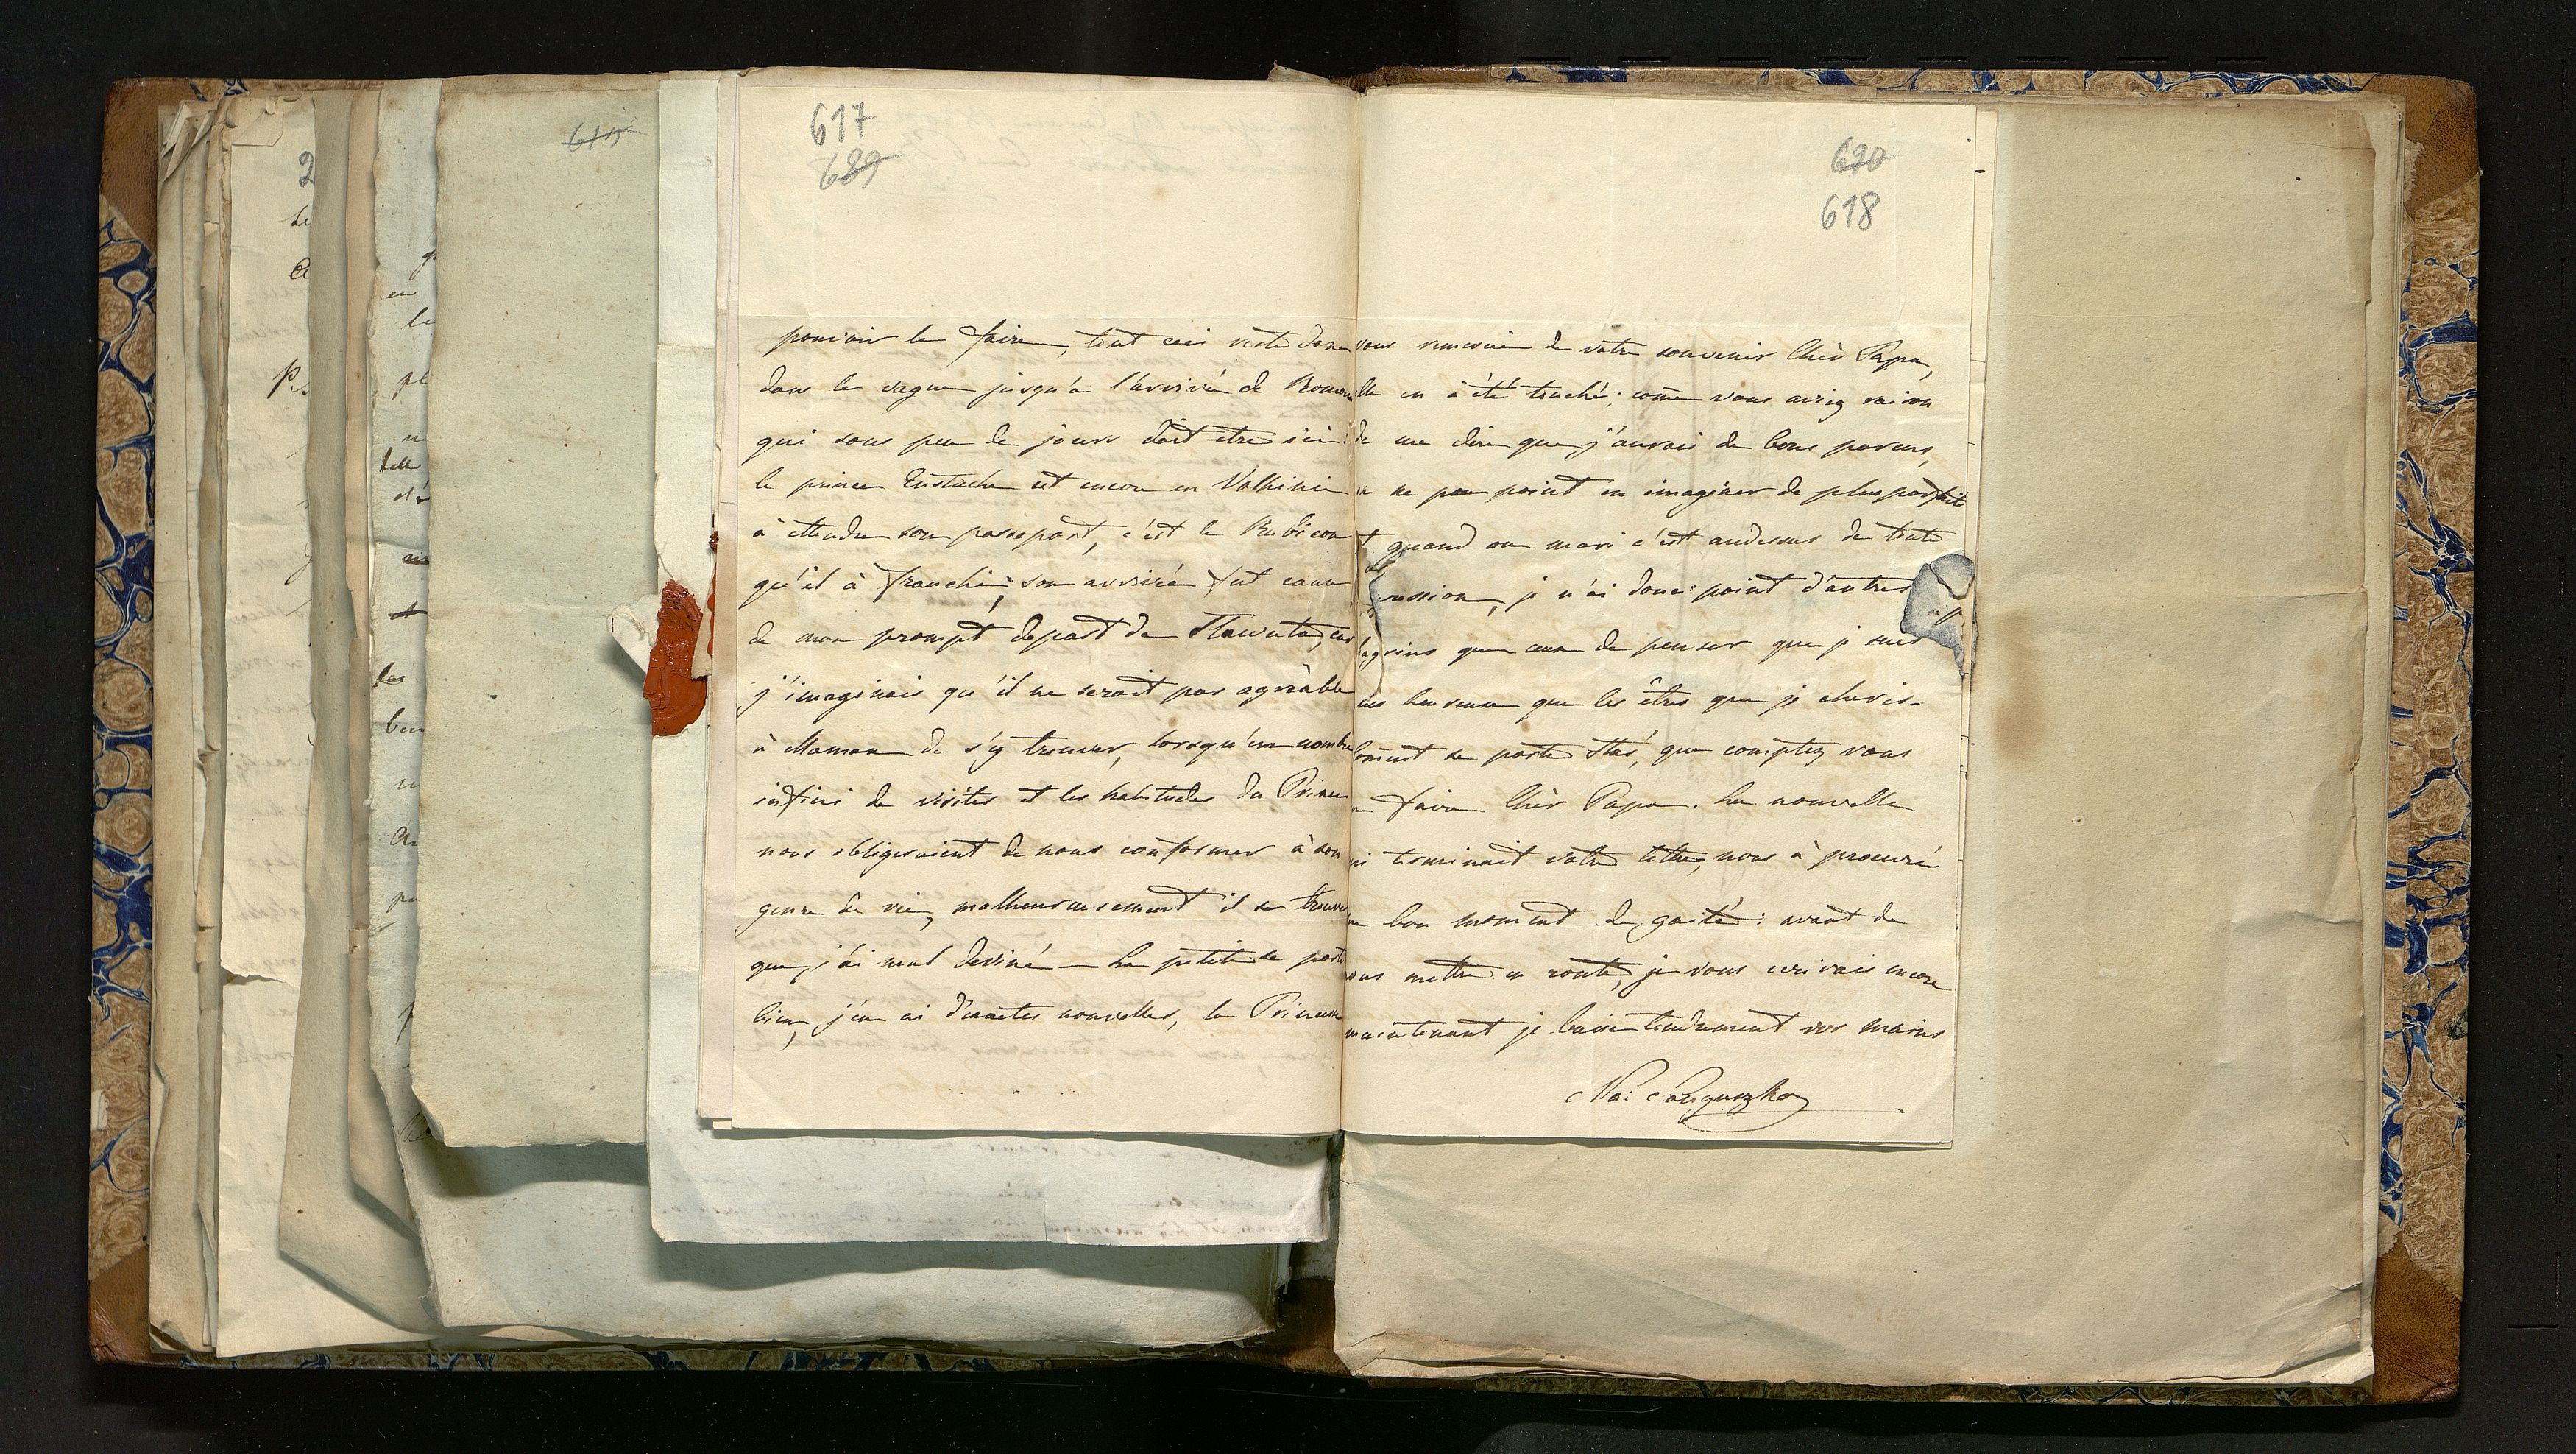 617
689
pouvoir le faire, tout ceci reste donc
dans le vague jusqu'a l'arrivée de Romain
qui sous peu de jours doit etre ici:
le prince Eustache est encore en Volhinie
à attendre son passeport, c'est le Rubicon
qu'il à franchir; son arrivée fut cause
de mon prompt depart de Slawuta, car
j'imaginais qu'il ne serait pas agréable
à Maman de s'y trouver, lorsqu'un nombre
infini de visites et les habitudes du Prince
nous obligeraient de nous conformer à son
genre de vie, malheureusement il se trouve
que j'ai mal deviné – La petite se porte
bien, j'en ai d'exactes nouvelles, la Princesse
690
618
vous remercie de votre souvenir Chèr Papa,
elle en à été touché; come vous aviez raison
de me dire que j'aurais de bons parens,
ne peu point en imaginer de plus parfaits
quand au mari c'est audessus de toute
ression, je n'ai donc point d'autres
agrins que ceux de penser que je suis
heureuse que les êtres que je cheris.
comment se porte Staś, que comptez vous
faire Chèr Papa. La nouvelle
qui terminait votre lettre, nous à procuré
bon moment de gaité: avant de
vous mettre en route, je vous ecrivais encore
maintenant je baise tendrement vos mains
Na: Sanguszko
615